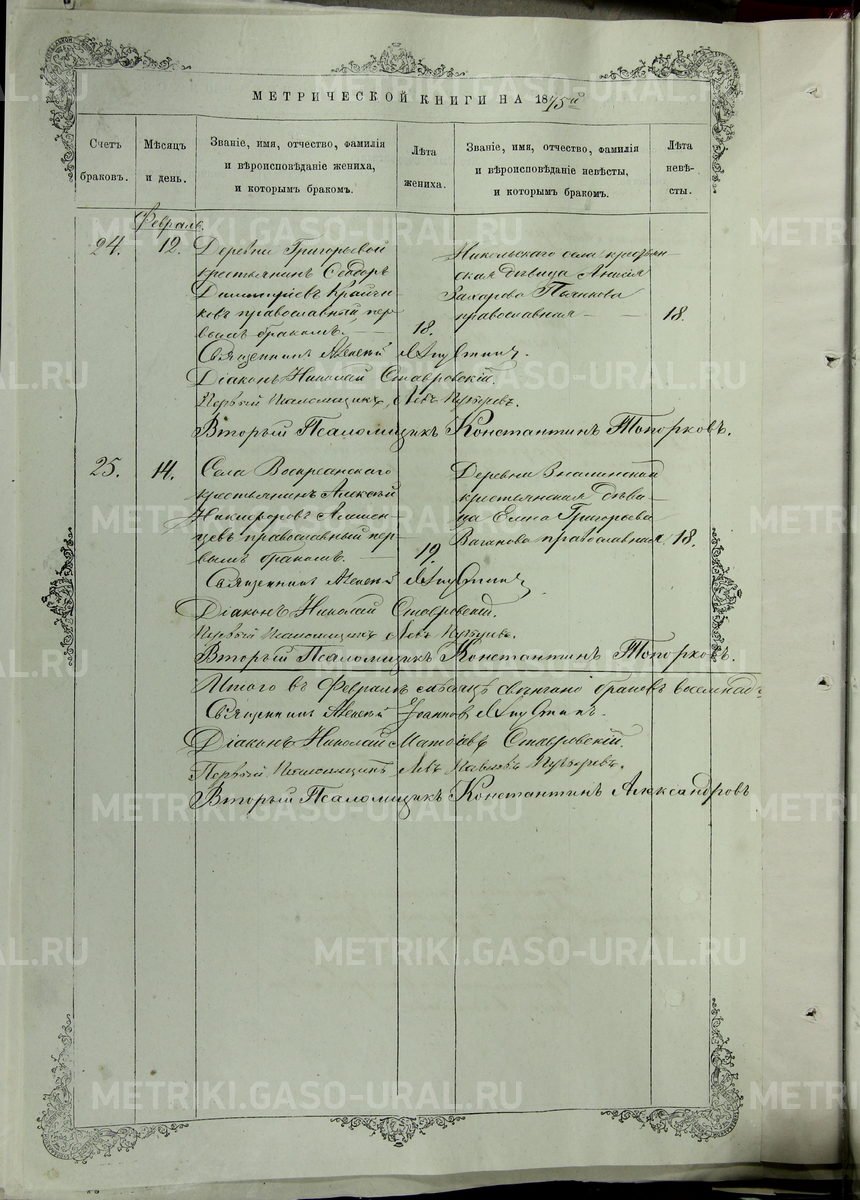 МЕТРИЧЕСКОЙ КНИГИ НА 1875й
Счетъ браковъ.
Мѣсяцъ и день.
Званіе, имя, отчество, фамилія
и вѣроисповѣданіе жениха,
и которымъ бракомъ.
Лѣта жениха.
Званіе, имя, отчество, фамилія
и вѣроисповѣданіе невѣсты,
и которымъ бракомъ.
Лѣта невѣ-
сты.
Февраль.
24. 12. Деревни Григорьевой
крестьянинъ Ѳеодоръ
Димитріевъ Крайчи-
ковъ православный, пер-
вымъ бракомъ. 18.
Никольскаго села крестьян-
ская дѣвица Анисія
Захарова Пьянкова
православная 18.
Священникъ Алексѣй
Діаконъ Николай Ставровскій.
Первый Псаломщикъ Левъ
Вторый Псаломщикъ Константинъ Топорковъ.
25. 14. Села Воскресенскаго
крестьянинъ Алексѣй
Никифоровъ
православный пер-
вымъ бракомъ. 19.
Деревни
крестьянская дѣви-
ца Елена Григорьева
Ваганова православная 18.
Священникъ Алексѣй
Діаконъ Николай Ставровскій.
Первый Псаломщикъ Левъ
Вторый Псаломщикъ Константинъ Топорковъ.
Итого въ Февралѣ мѣсяцѣ свѣнчано браковъ восемнад-
Священникъ Алексѣй Іоанновъ
Діаконъ Николай Матѳіевъ Ставровскій.
Первый Псаломщикъ Левъ Павловъ
Вторый Псаломщикъ Константинъ Александровъ
METRIKI.GASO-URAL.RU